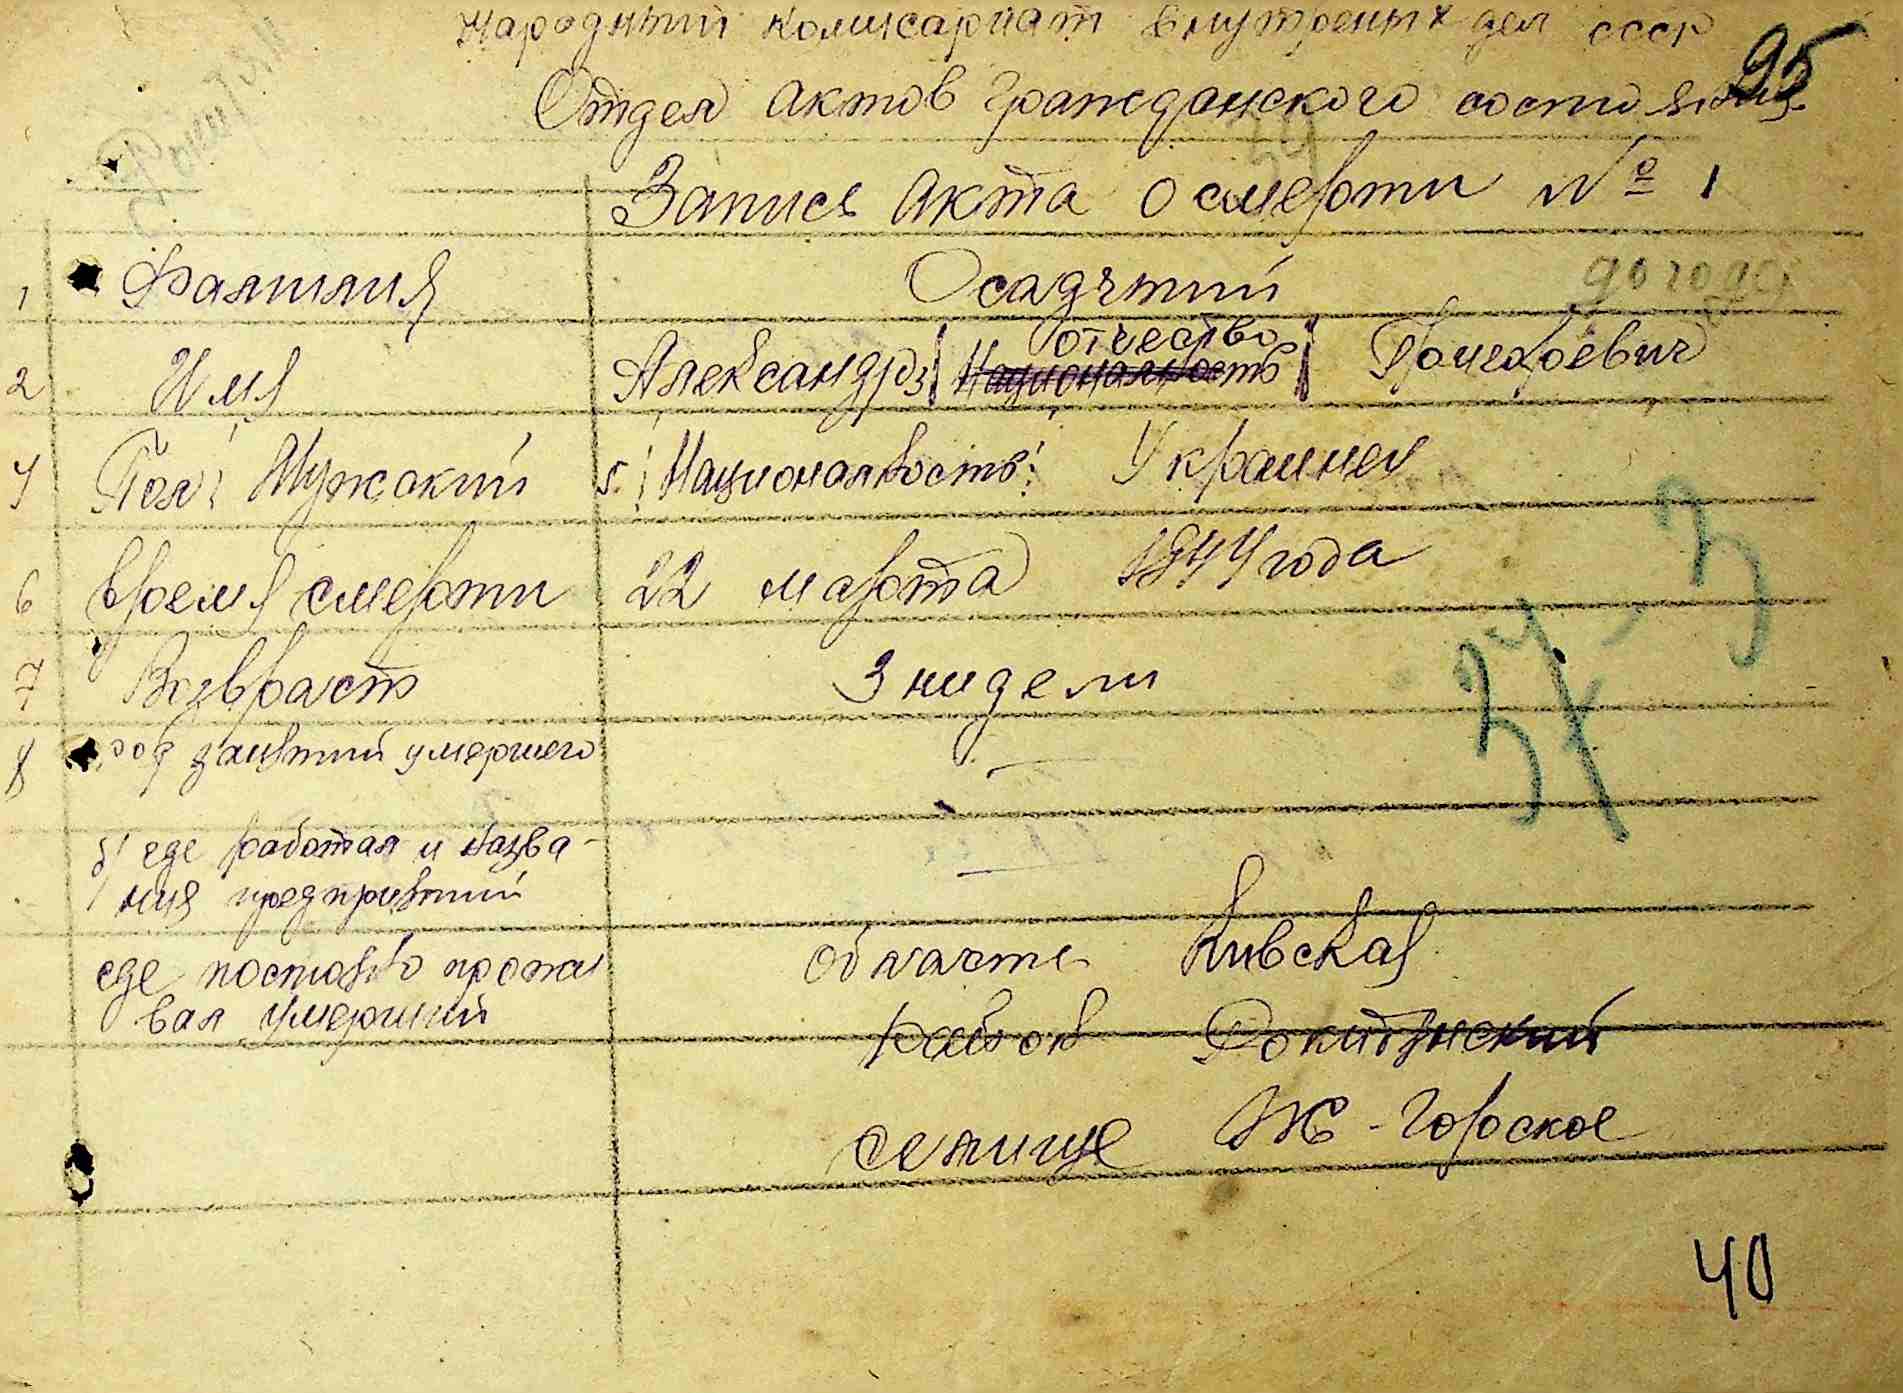 Народный комисариат внутреных дел СССР
95
Отдел актов гражданского состояния
Запись акта о смерти № 1
1 Фамилия Осадчий
до года
2 Имя Александр 3 отчество Национальность
4 Пол Мужский 5. Национальность Украинец
6 Время смерти 22 марта 1944 года
7 Возвраст 3 нидели
8 род занятий умершего —
б) где работал и назва-
ния предприятий —
где постоянно прожи
вал умерший
область Кивская
район Рокитянский
селище Ж-Горское
40